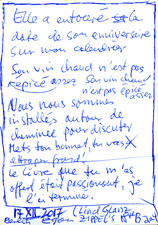 Elle a entouré la
date de son anniversaire
sur mon calendrier
Son vin chaud n'est pas
épicé assez Son vin chaud
n'est pas épicé assez
Nous nous sommes
installés autour de
cheminée pour discuter
Mets ton bonnet tu vas
attraper froid!
Le livre que tu m'as
offert était passionnant, je
l'ai terminé.
17 XII 2017 (Lind Glanz